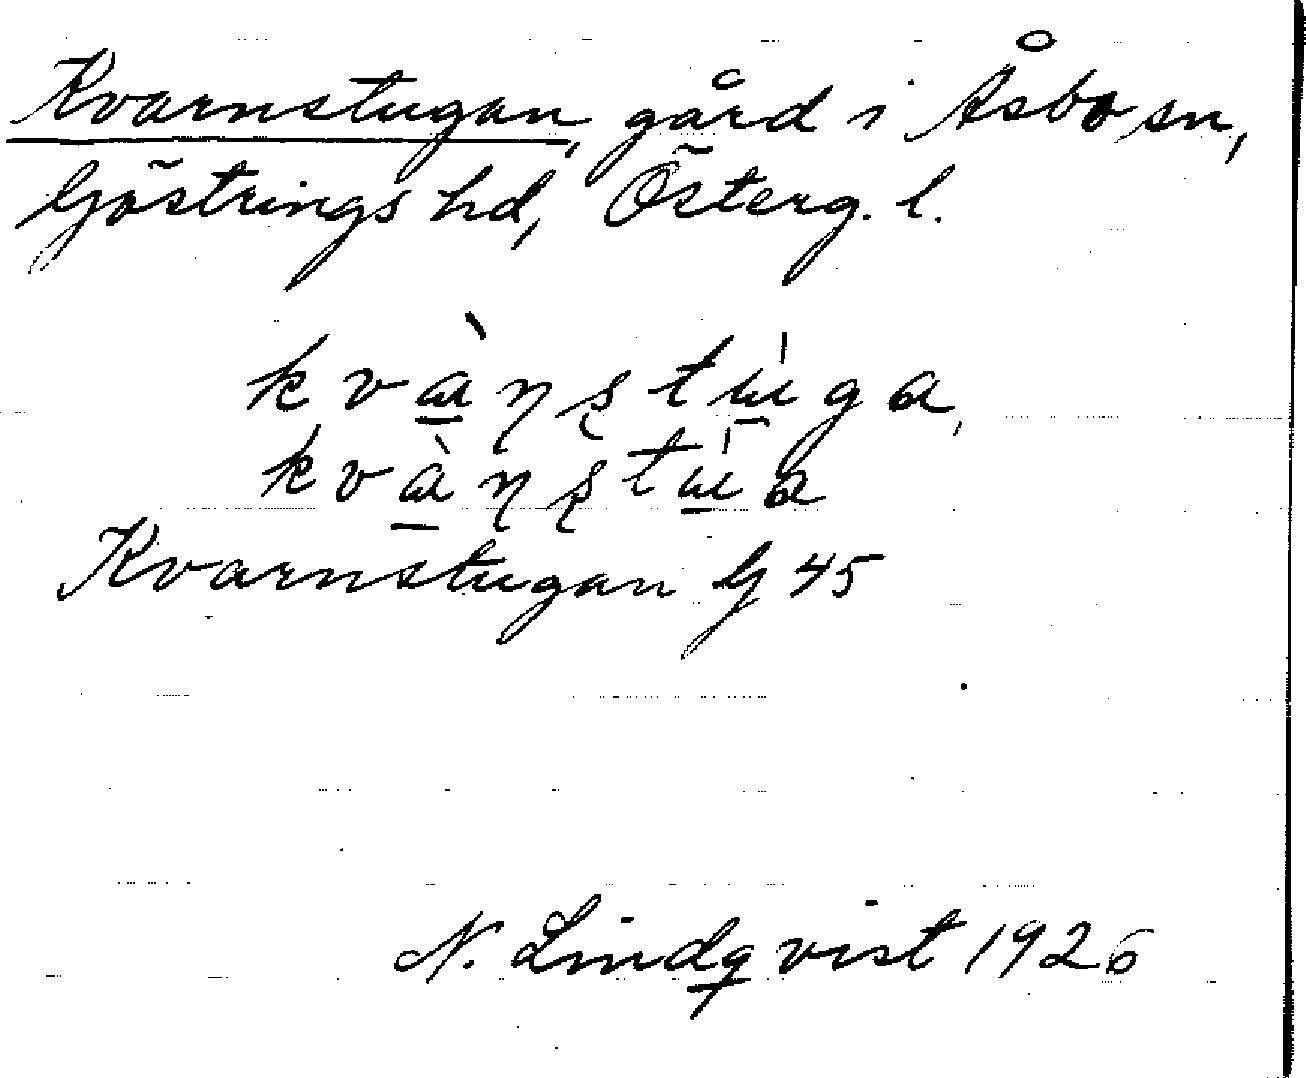 Kvarnstugan, gård i Åsbo sn,
Göstrings hd, Österg. l.
kvàṇṣtu̍ga,
kvàṇṣtu̍a
Kvarnstugan G 45
N. Lindqvist 1926